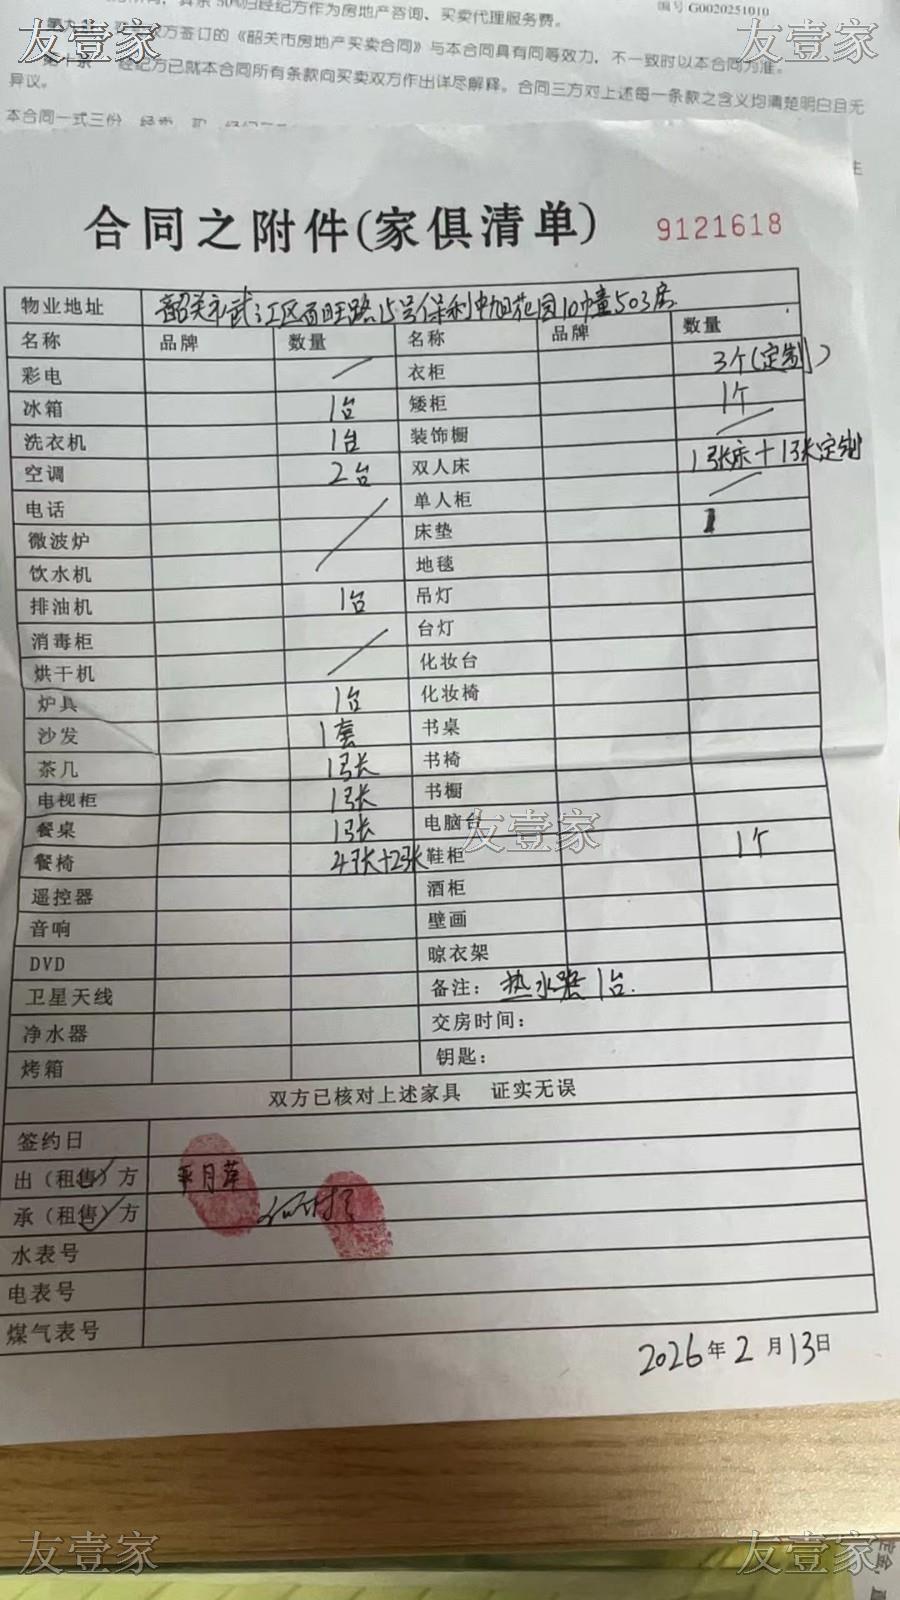 友壹家 友壹家
50%归经纪方作为房地产咨询、买卖代理服务费。
编号G0020251010
方签订的《韶关市房地产买卖合同》与本合同具有同等效力，不一致时以本合同为准。
第十条 经纪方已就本合同所有条款向买卖双方作出详尽解释。合同三方对上述每一条款之含义均清楚明白且无
异议。
本合同一式三份
合同之附件(家俱清单) 9121618
物业地址 韶关市武江区百旺路15号保利中旭花园10幢503房
名称 品牌 数量 名称 品牌 数量
彩电 / 衣柜 3个(定制)
冰箱 1台 矮柜 1个
洗衣机 1台 装饰橱 /
空调 2台 双人床 1张床+1张定制
电话 单人柜 /
微波炉 / 床垫 1
饮水机 地毯
排油机 1台 吊灯
消毒柜 台灯
烘干机 / 化妆台
炉具 1台 化妆椅
沙发 1套 书桌
茶几 1张 书椅
电视柜 1张 书橱
餐桌 1张 电脑台
友壹家
餐椅 4张+2张 鞋柜 1个
遥控器 酒柜
音响 壁画
DVD 晾衣架
卫星天线 备注：热水器1台.
净水器 交房时间：
烤箱 钥匙：
双方已核对上述家具 证实无误
签约日
出（租售）方
承（租售）方
水表号
电表号
煤气表号
2026年2月13日
友壹家 友壹家